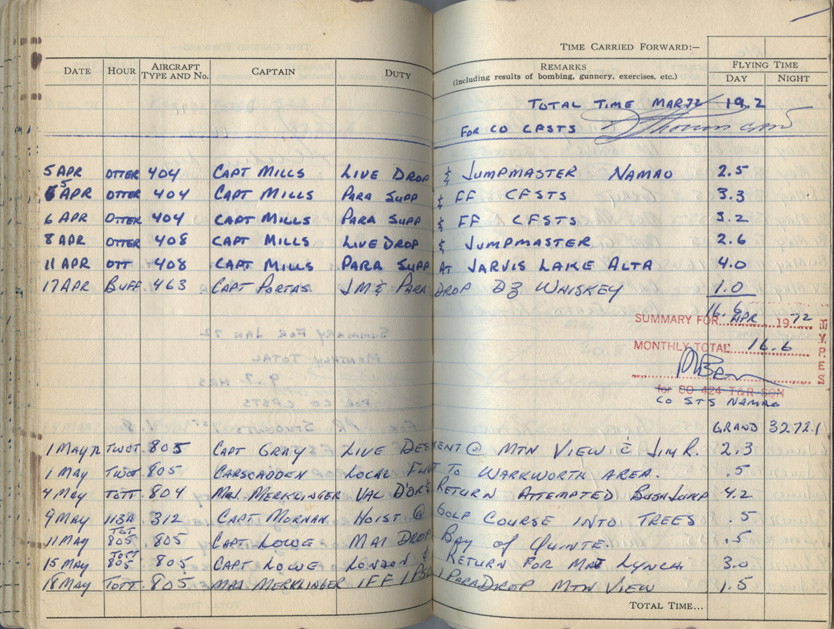 TIME CARRIED FORWARD:—
DATE HOUR AIRCRAFT TYPE AND No. CAPTAIN DUTY REMARKS (including results of bombing, gunnery, exercises, etc.) FLYING TIME DAY NIGHT
TOTAL TIME MAR 72 19.2
FOR CO CFSTS
5 APR OTTER 404 CAPT MILLS LIVE DROP & JUMPMASTER NAMAO 2.5
5 APR OTTER 404 CAPT MILLS PARA SUPP & FF CFSTS 3.3
6 APR OTTER 404 CAPT MILLS PARA SUPP & FF CFSTS 3.2
8 APR OTTER 408 CAPT MILLS LIVE DROP & JUMPMASTER 2.6
11 APR OTT 408 CAPT MILLS PARA SUPP AT JARVIS LAKE ALTA 4.0
17 APR BUFF 463 CAPT PORTAS JM & PARA DROP DZ WHISKEY 1.0
16.6
SUMMARY FOR APR 1972
MONTHLY TOTAL 16.6
TYPES
for CO 424 T&R SQN
CO STS NAMAO
GRAND 3272.1
1 MAY 72 TWOT. 805 CAPT GRAY LIVE DESCENT @ MTN VIEW & JIM R. 2.3
1 MAY TWOT 805 CARSCADDEN LOCAL TO WARKWORTH AREA. .5
4 MAY TOTT 804 MAJ MERKLINGER VAL D'OR & RETURN ATTEMPTED BUSH JUMP 4.2
9 MAY 113A 312 CAPT MORNAN HOIST @ GOLF COURSE INTO TREES .5
11 MAY TOT 805 805 CAPT LOWE DROP BAY OF QUINTE .5
15 MAY TOTT 805 805 CAPT LOWE LONDON & RETURN FOR MAJ LYNCH 3.0
18 MAY TOTT 805 MAJ MERKLINGER 1 FF 1 PARADROP MTN VIEW 1.5
TOTAL TIME...